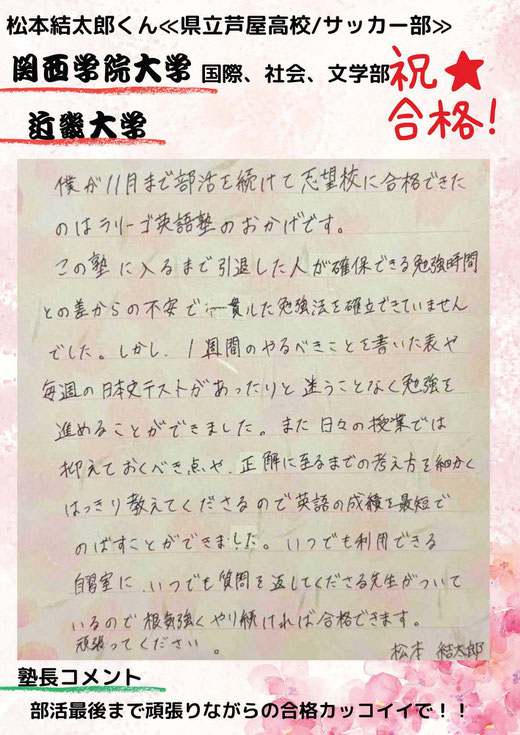 松本結太郎くん≪県立芦屋高校/サッカー部≫
関西学院大学 国際、社会、文学部
近畿大学
祝★
合格!
僕が11月まで部活を続けて志望校に合格できた
のはラリーゴ英語塾のおかげです。
この塾に入るまで引退した人が確保できる勉強時間
との差からの不安で一貫した勉強法を確立できていません
でした。しかし、1週間のやるべきことを書いた表や
毎週の日本史テストがあったりと迷うことなく勉強を
進めることができました。また日々の授業では
抑えておくべき点や、正解に至るまでの考え方を細かく
はっきり教えてくださるので英語の成績を最短で
のばすことができました。いつでも利用できる
自習室に、いつでも質問を返してくださる先生がついて
いるので根気強くやり続ければ合格できます。
頑張ってください。
松本 結太郎
塾長コメント
部活最後まで頑張りながらの合格カッコイイで!!